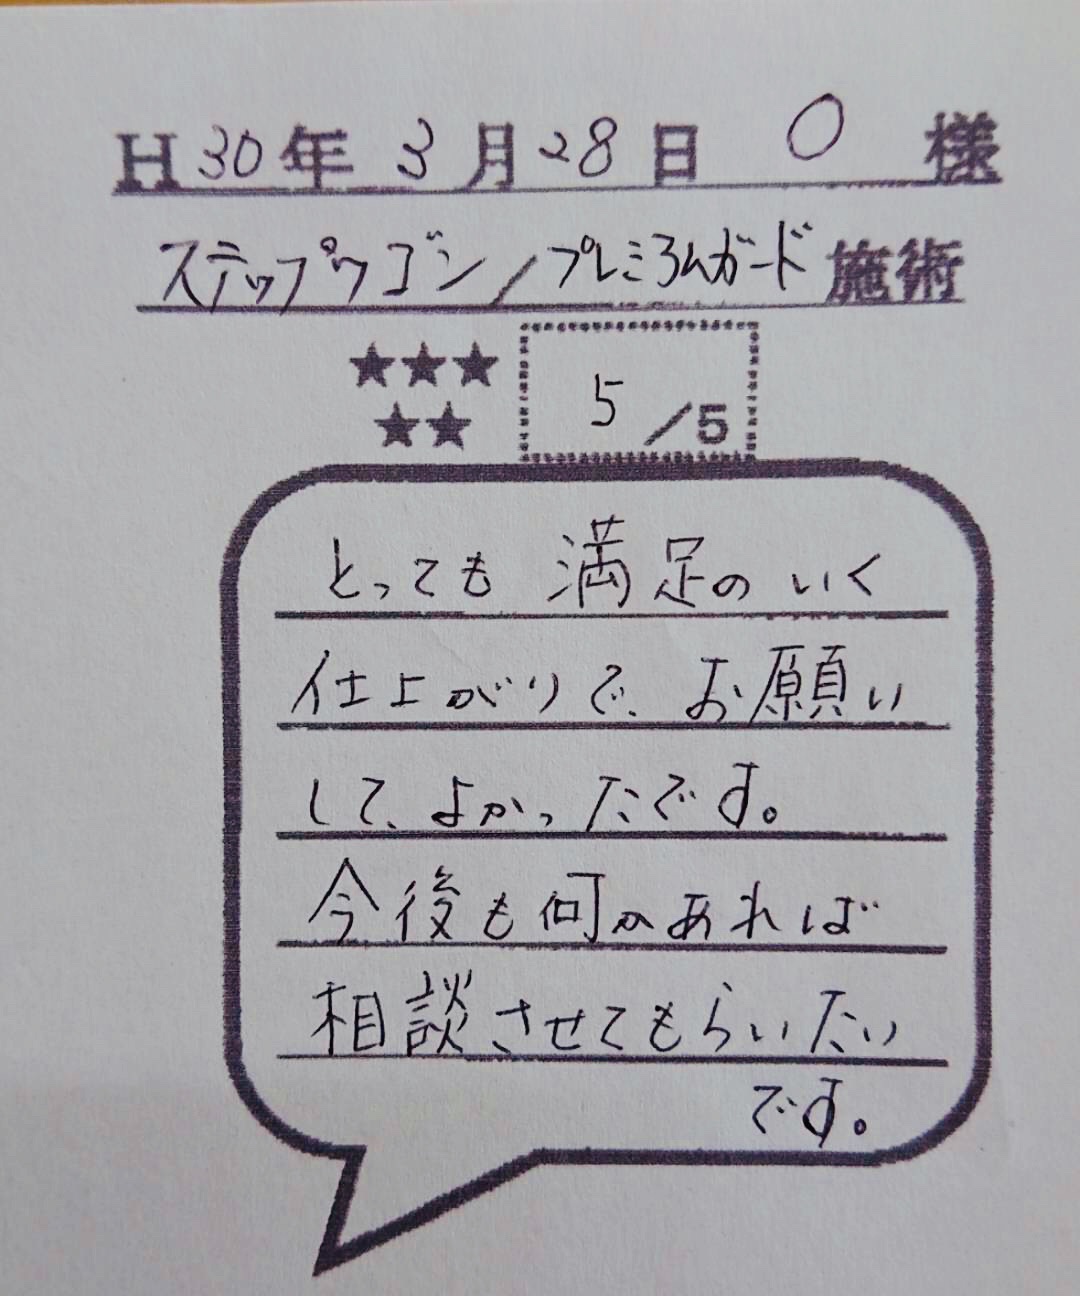 H30年 3月28日 O 様
ステップワゴン/プレミアムガード施術
★★★
★★
5/5
とっても満足のいく
仕上がりで、お願い
して、よかったです。
今後も何かあれば
相談させてもらいたい
です。